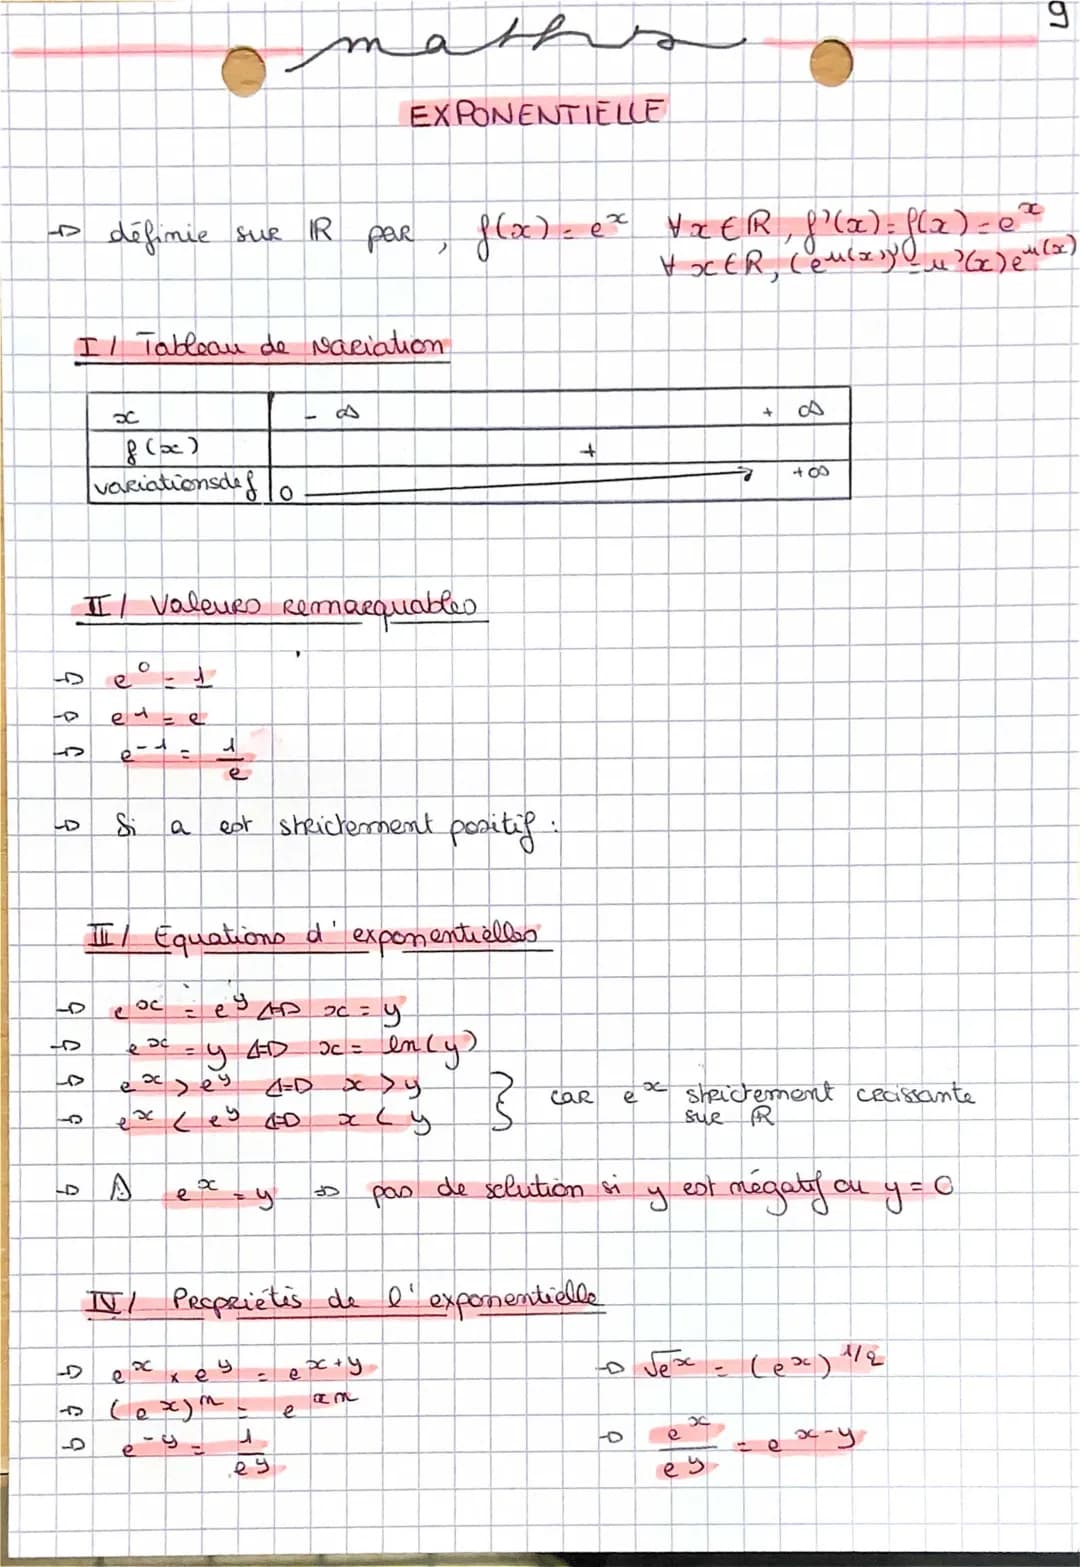 maths
9
EXPONENTIELLE
→ définie sur ℝ par, f(x) = e^x ∀x∈ℝ, f'(x) = f(x) = e^x
∀x∈ℝ, (e^u(x))' = u'(x)e^u(x)
I / Tableau de variation
x -∞ +∞
f(x) +
variations de f 0 +∞
II / Valeurs remarquables
→ e^0 = 1
→ e^1 = e
→ e^-1 = 1/e
→ Si a est strictement positif :
III / Equations d'exponentielles
→ e^x = e^y ⇔ x = y
→ e^x = y ⇔ x = ln(y)
→ e^x > e^y ⇔ x > y } car e^x strictement croissante
→ e^x < e^y ⇔ x < y sur ℝ
→ ⚠ e^x = y ⇒ pas de solution si y est négatif ou y = 0
IV / Propriétés de l'exponentielle
→ e^x × e^y = e^x+y → √e^x = (e^x)^1/2
→ (e^x)^n = e^xn
→ e^-y = 1/e^y → e^x/e^y = e^x-y